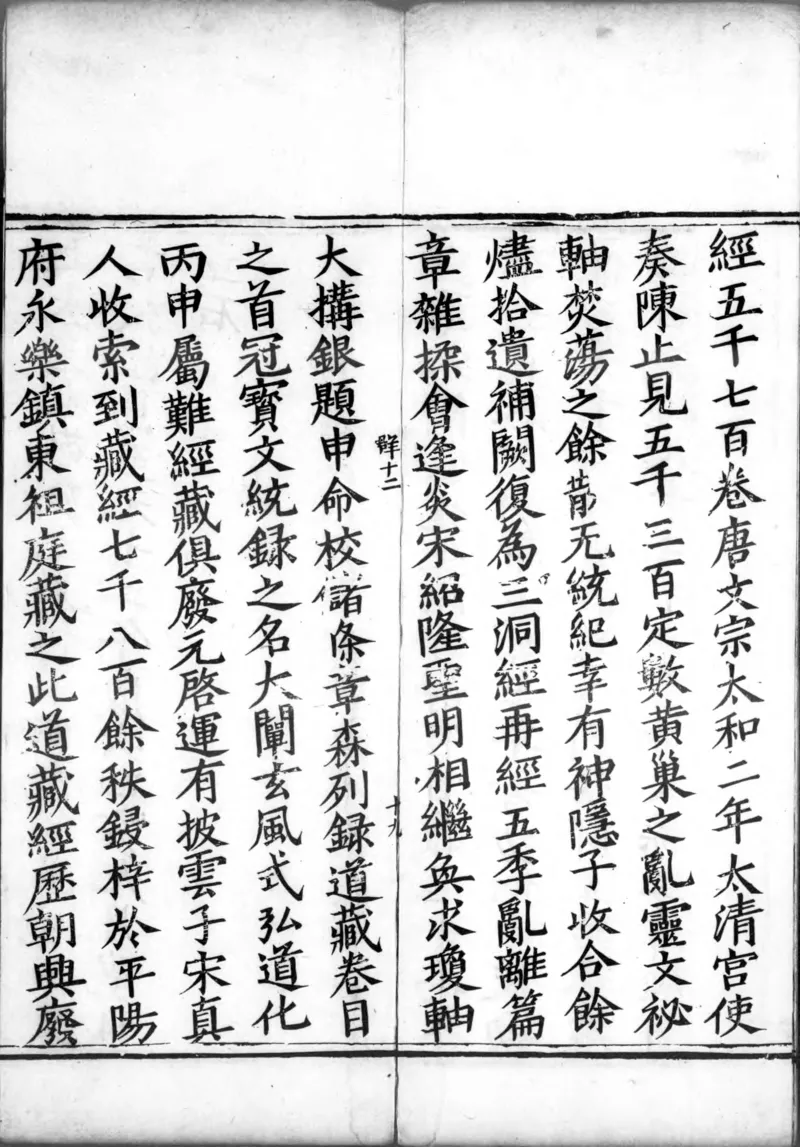 經五千七百卷唐文宗太和二年太清宮使
奏陳止見五千三百定數黃巢之亂靈文祕
軸焚蕩之餘散无統紀幸有神隱子收合餘
燼拾遺補闕復為三洞經再經五季亂離篇
章雜揉會逢炎宋紹隆聖明相繼奐求瓊軸
十二
十九
大搆銀題申命校讎條章森列録道藏卷目
之首冠寳文統録之名大闡玄風式弘道化
丙申屬難經藏俱廢元啓運有披雲子宋真
人收索到藏經七千八百餘秩鋟梓於平陽
府永樂鎮東祖庭藏之此道藏經歷朝興廢